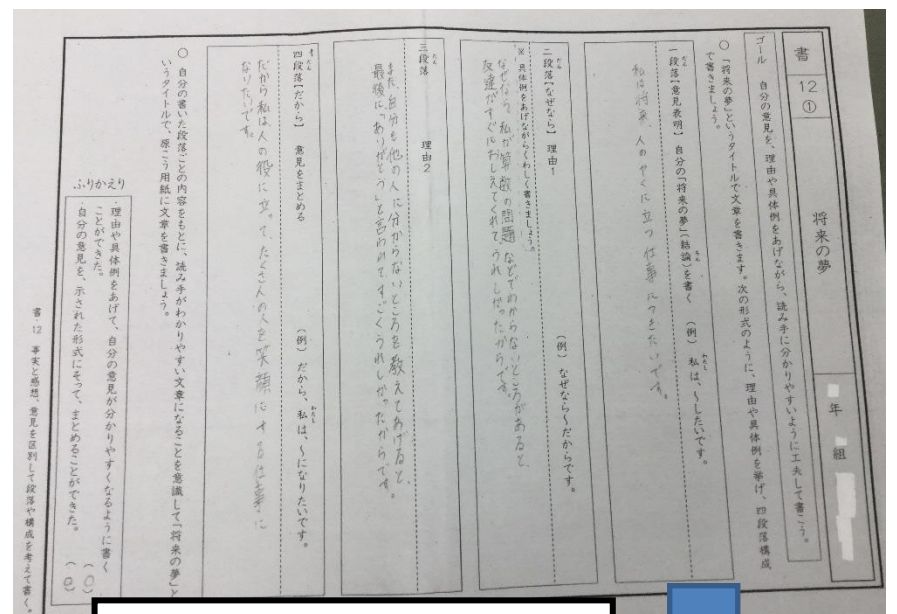 書
12
①
将来の夢
年
組
ゴール 自分の意見を、理由や具体例をあげながら、読み手に分かりやすいように工夫して書こう。
○ 「将来の夢」というタイトルで文章を書きます。次の形式のように、理由や具体例を挙げ、四段落構成
で書きましょう。
一段落【意見表明】 自分の「将来の夢」(結論)を書く (例) 私は、~したいです。
私は将来、人のやくに立つ仕事につきたいです。
二段落【なぜなら】 理由1 (例) なぜなら~だからです。
※ 具体例をあげながらくわしく書きましょう。
なぜなら、私が算数の問題などでわからないところがあると、
友達がすぐにおしえてくれて、うれしかったからです。
三段落 理由2
また、自分も他の人に分からないところを教えてあげると、
最後に「ありがとう」と言われて、すごくうれしかったからです。
四段落【だから】 意見をまとめる (例) だから、私は、~になりたいです。
だから私は人の役に立って、たくさんの人を笑顔にする仕事に
なりたいです。
○ 自分の書いた段落ごとの内容をもとに、読み手がわかりやすい文章になることを意識して「将来の夢」と
いうタイトルで、原こう用紙に文章を書きましょう。
ふりかえり
・理由や具体例をあげて、自分の意見が分かりやすくなるように書く
ことができた。 (◎)
・自分の意見を、示された形式にそって、まとめることができた。 (◎)
書-12 事実と感想、意見を区別して段落や構成を考えて書く。